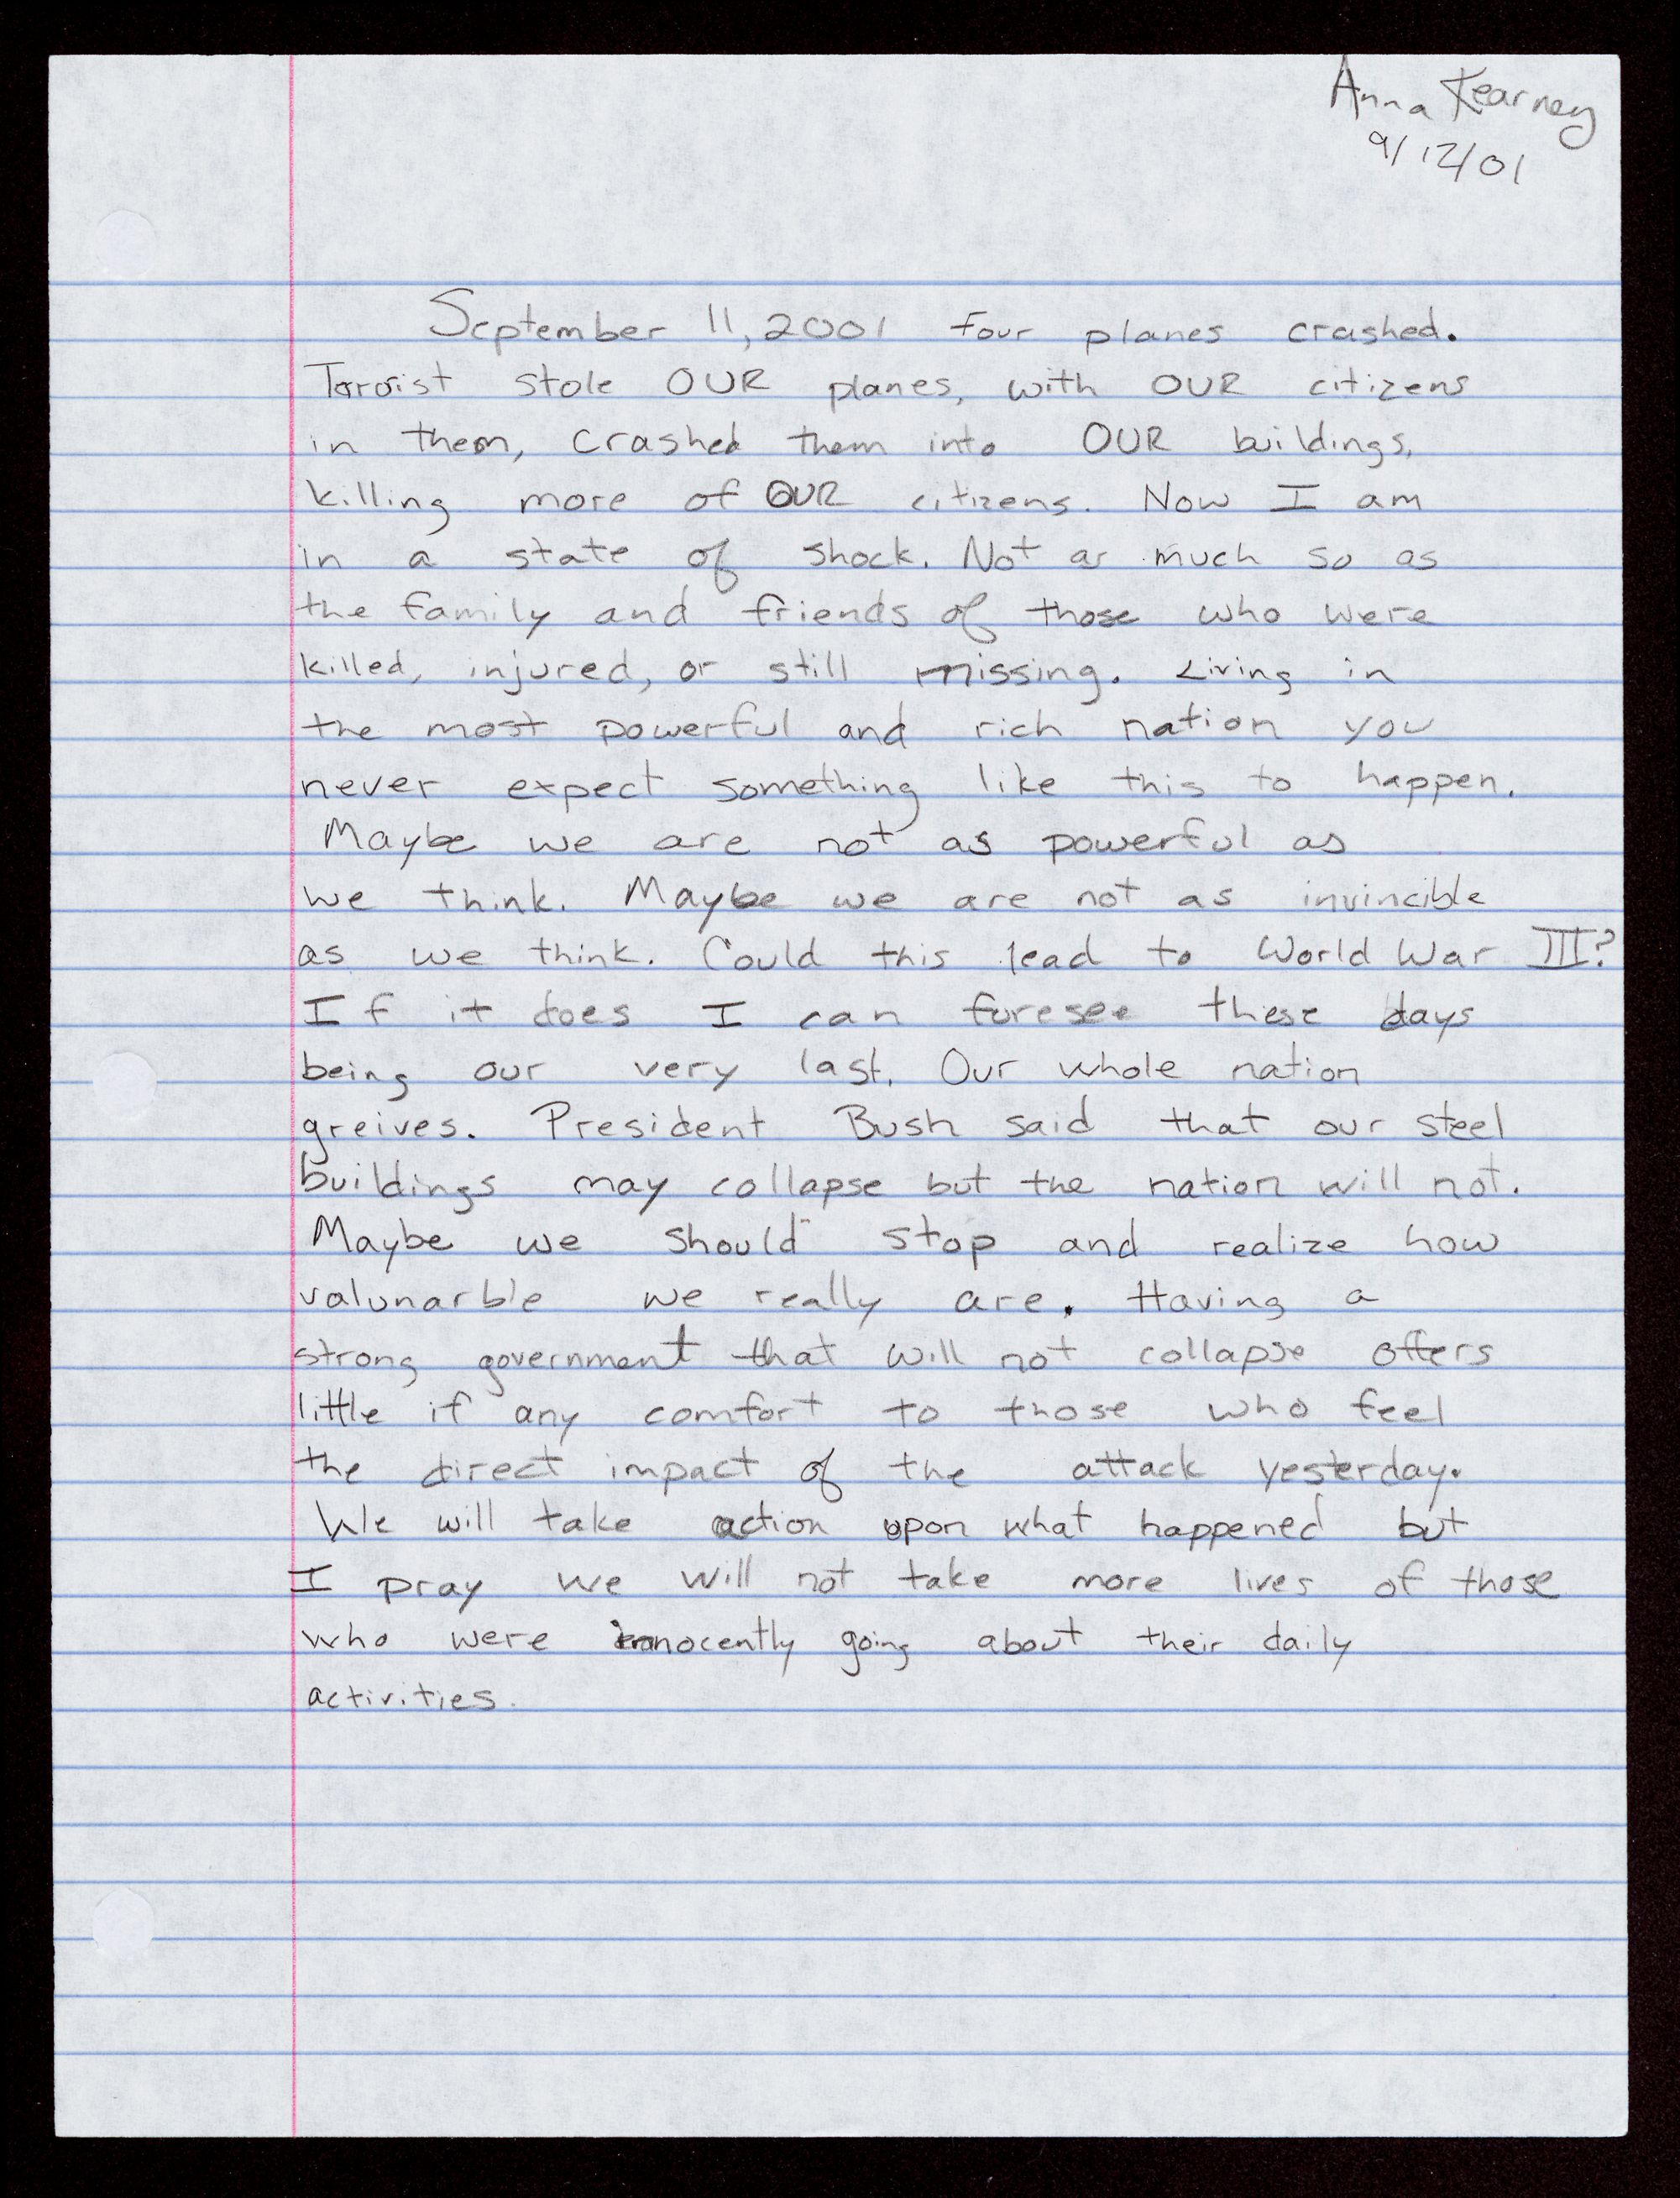 Anna Kearney
9/12/01
September 11, 2001 four planes crashed.
Terroist stole OUR planes, with OUR citizens
in them, crashed them into OUR buildings,
killing more of OUR citizens. Now I am
in a state of shock. Not as much so as
the family and friends of those who were
killed, injured, or still missing. Living in
the most powerful and rich nation you
never expect something like this to happen.
Maybe we are not as powerful as
we think. Maybe we are not as invincible
as we think. Could this lead to World War III?
If it does I can foresee these days
being our very last. Our whole nation
greives. President Bush said that our steel
buildings may collapse but the nation will not.
Maybe we should stop and realize how
valunarble we really are. Having a
strong government that will not collapse offers
little if any comfort to those who feel
the direct impact of the attack yesterday.
We will take action upon what happened but
I pray we will not take more lives of those
who were innocently going about their daily
activities.